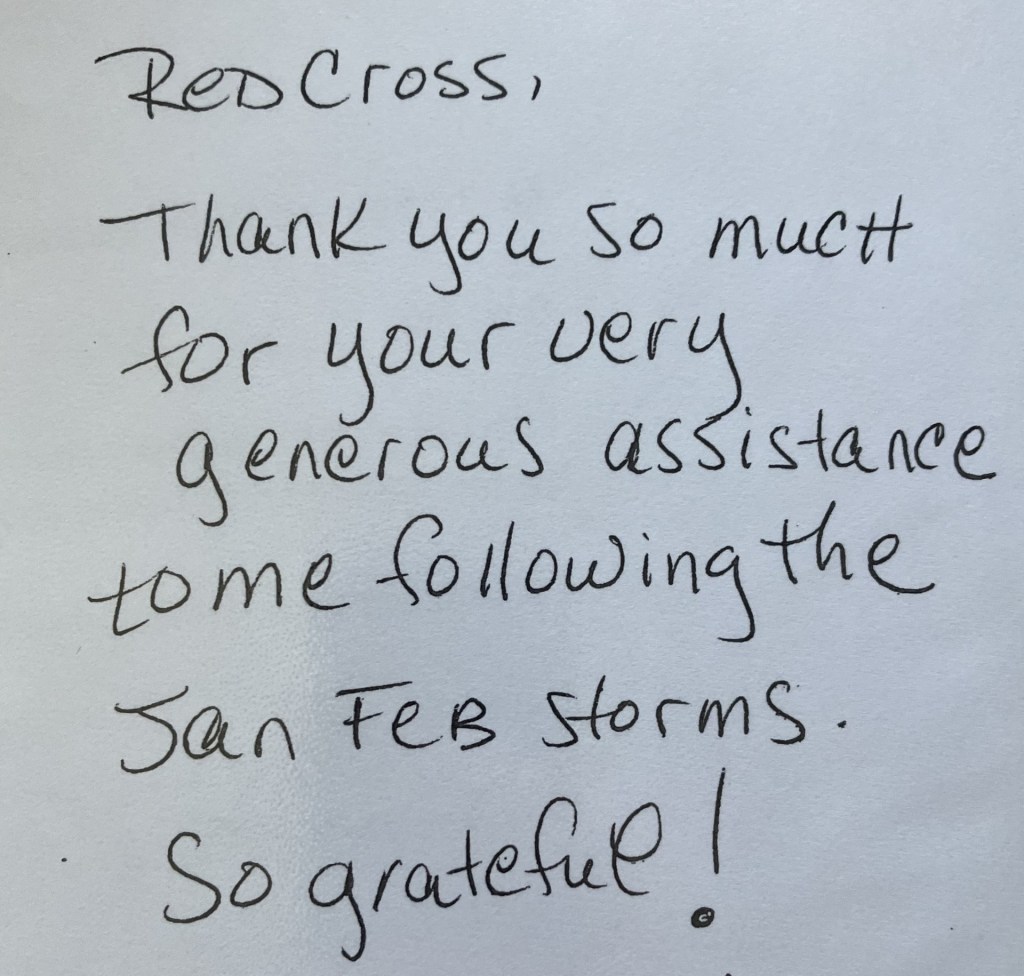 Red Cross,
Thank you so much
for your very
generous assistance
to me following the
Jan Feb storms.
So grateful!